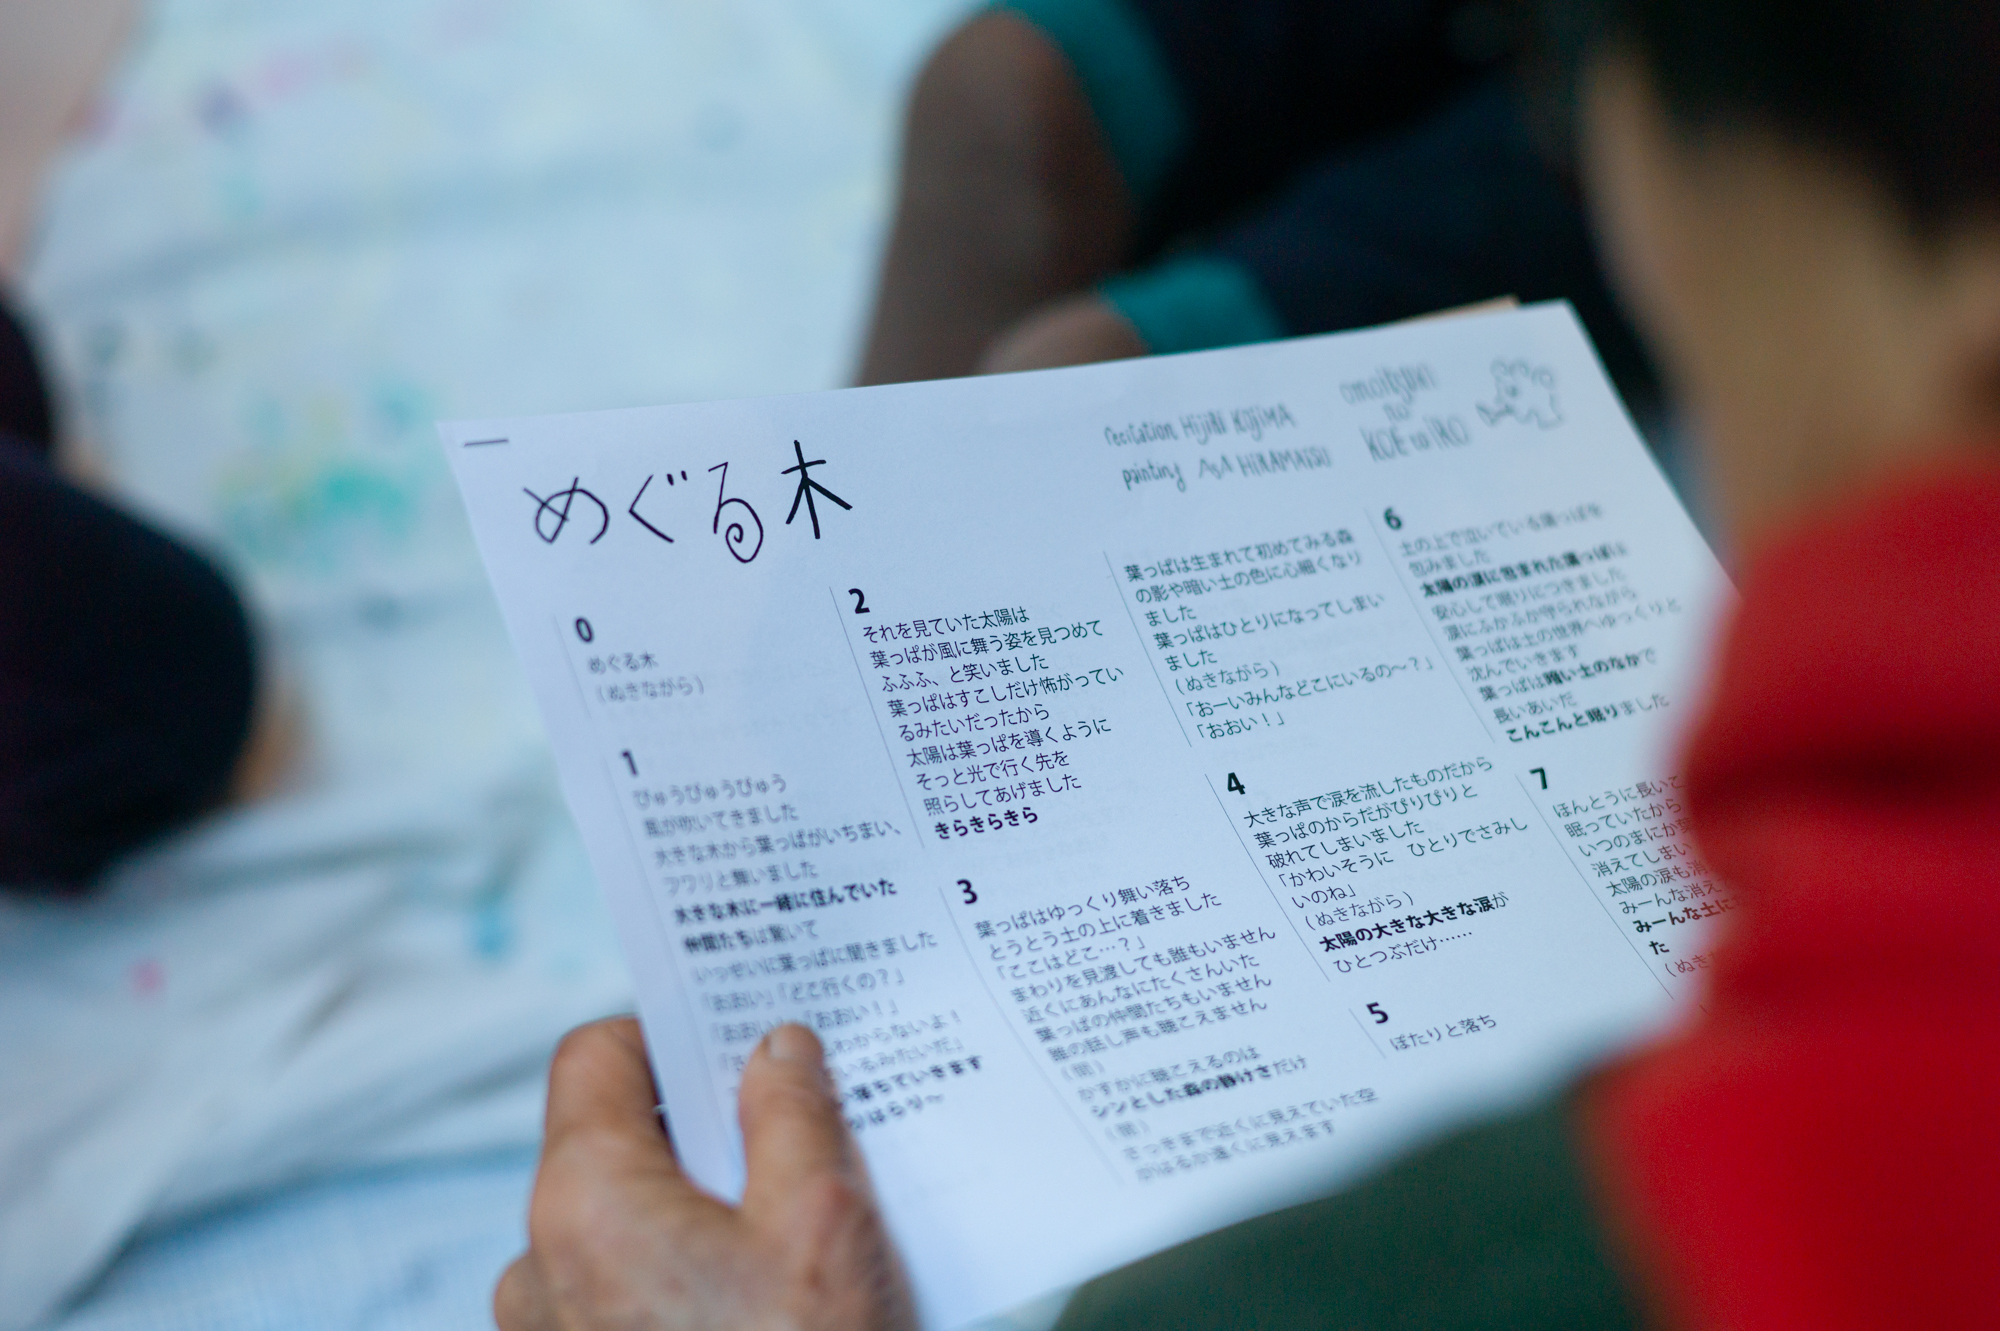 めぐる木
recitation HijiRi KOJiMA
painting AsA HiRAMATSU
omoitsuki
no
KOE to IRO
0
めぐる木
（ぬきながら）
1
びゅうびゅうびゅう
風が吹いてきました
大きな木から葉っぱがいちまい、
フワリと舞いました
大きな木に一緒に住んでいた
仲間たちは驚いて
いっせいに葉っぱに聞きました
「おおい」「どこ行くの？」
「おおい」「おおい！」
わからないよ！
いるみたいだ」
落ちていきます
はらり〜
2
それを見ていた太陽は
葉っぱが風に舞う姿を見つめて
ふふふ、と笑いました
葉っぱはすこしだけ怖がってい
るみたいだったから
太陽は葉っぱを導くように
そっと光で行く先を
照らしてあげました
きらきらきら
3
葉っぱはゆっくり舞い落ち
とうとう土の上に着きました
「ここはどこ…？」
まわりを見渡しても誰もいません
近くにあんなにたくさんいた
葉っぱの仲間たちもいません
誰の話し声も聴こえません
（間）
かすかに聴こえるのは
シンとした森の静けさだけ
（間）
さっきまで近くに見えていた空
がはるか遠くに見えます
葉っぱは生まれて初めてみる森
の影や暗い土の色に心細くなり
ました
葉っぱはひとりになってしまい
ました
（ぬきながら）
「おーいみんなどこにいるの〜？」
「おおい！」
4
大きな声で涙を流したものだから
葉っぱのからだがぴりぴりと
破れてしまいました
「かわいそうに　ひとりでさみし
いのね」
（ぬきながら）
太陽の大きな大きな涙が
ひとつぶだけ……
5
ぽたりと落ち
6
土の上で泣いている葉っぱを
包みました
太陽の涙に包まれた葉っぱは
安心して眠りにつきました
涙にふかふか守られながら
葉っぱは土の世界へゆっくりと
沈んでいきます
葉っぱは暗い土のなかで
長いあいだ
こんこんと眠りました
7
ほんとうに長いこ
眠っていたから
いつのまにか
消えてしまい
太陽の涙も消
みーんな消え
みーんな土に
た
（ぬき